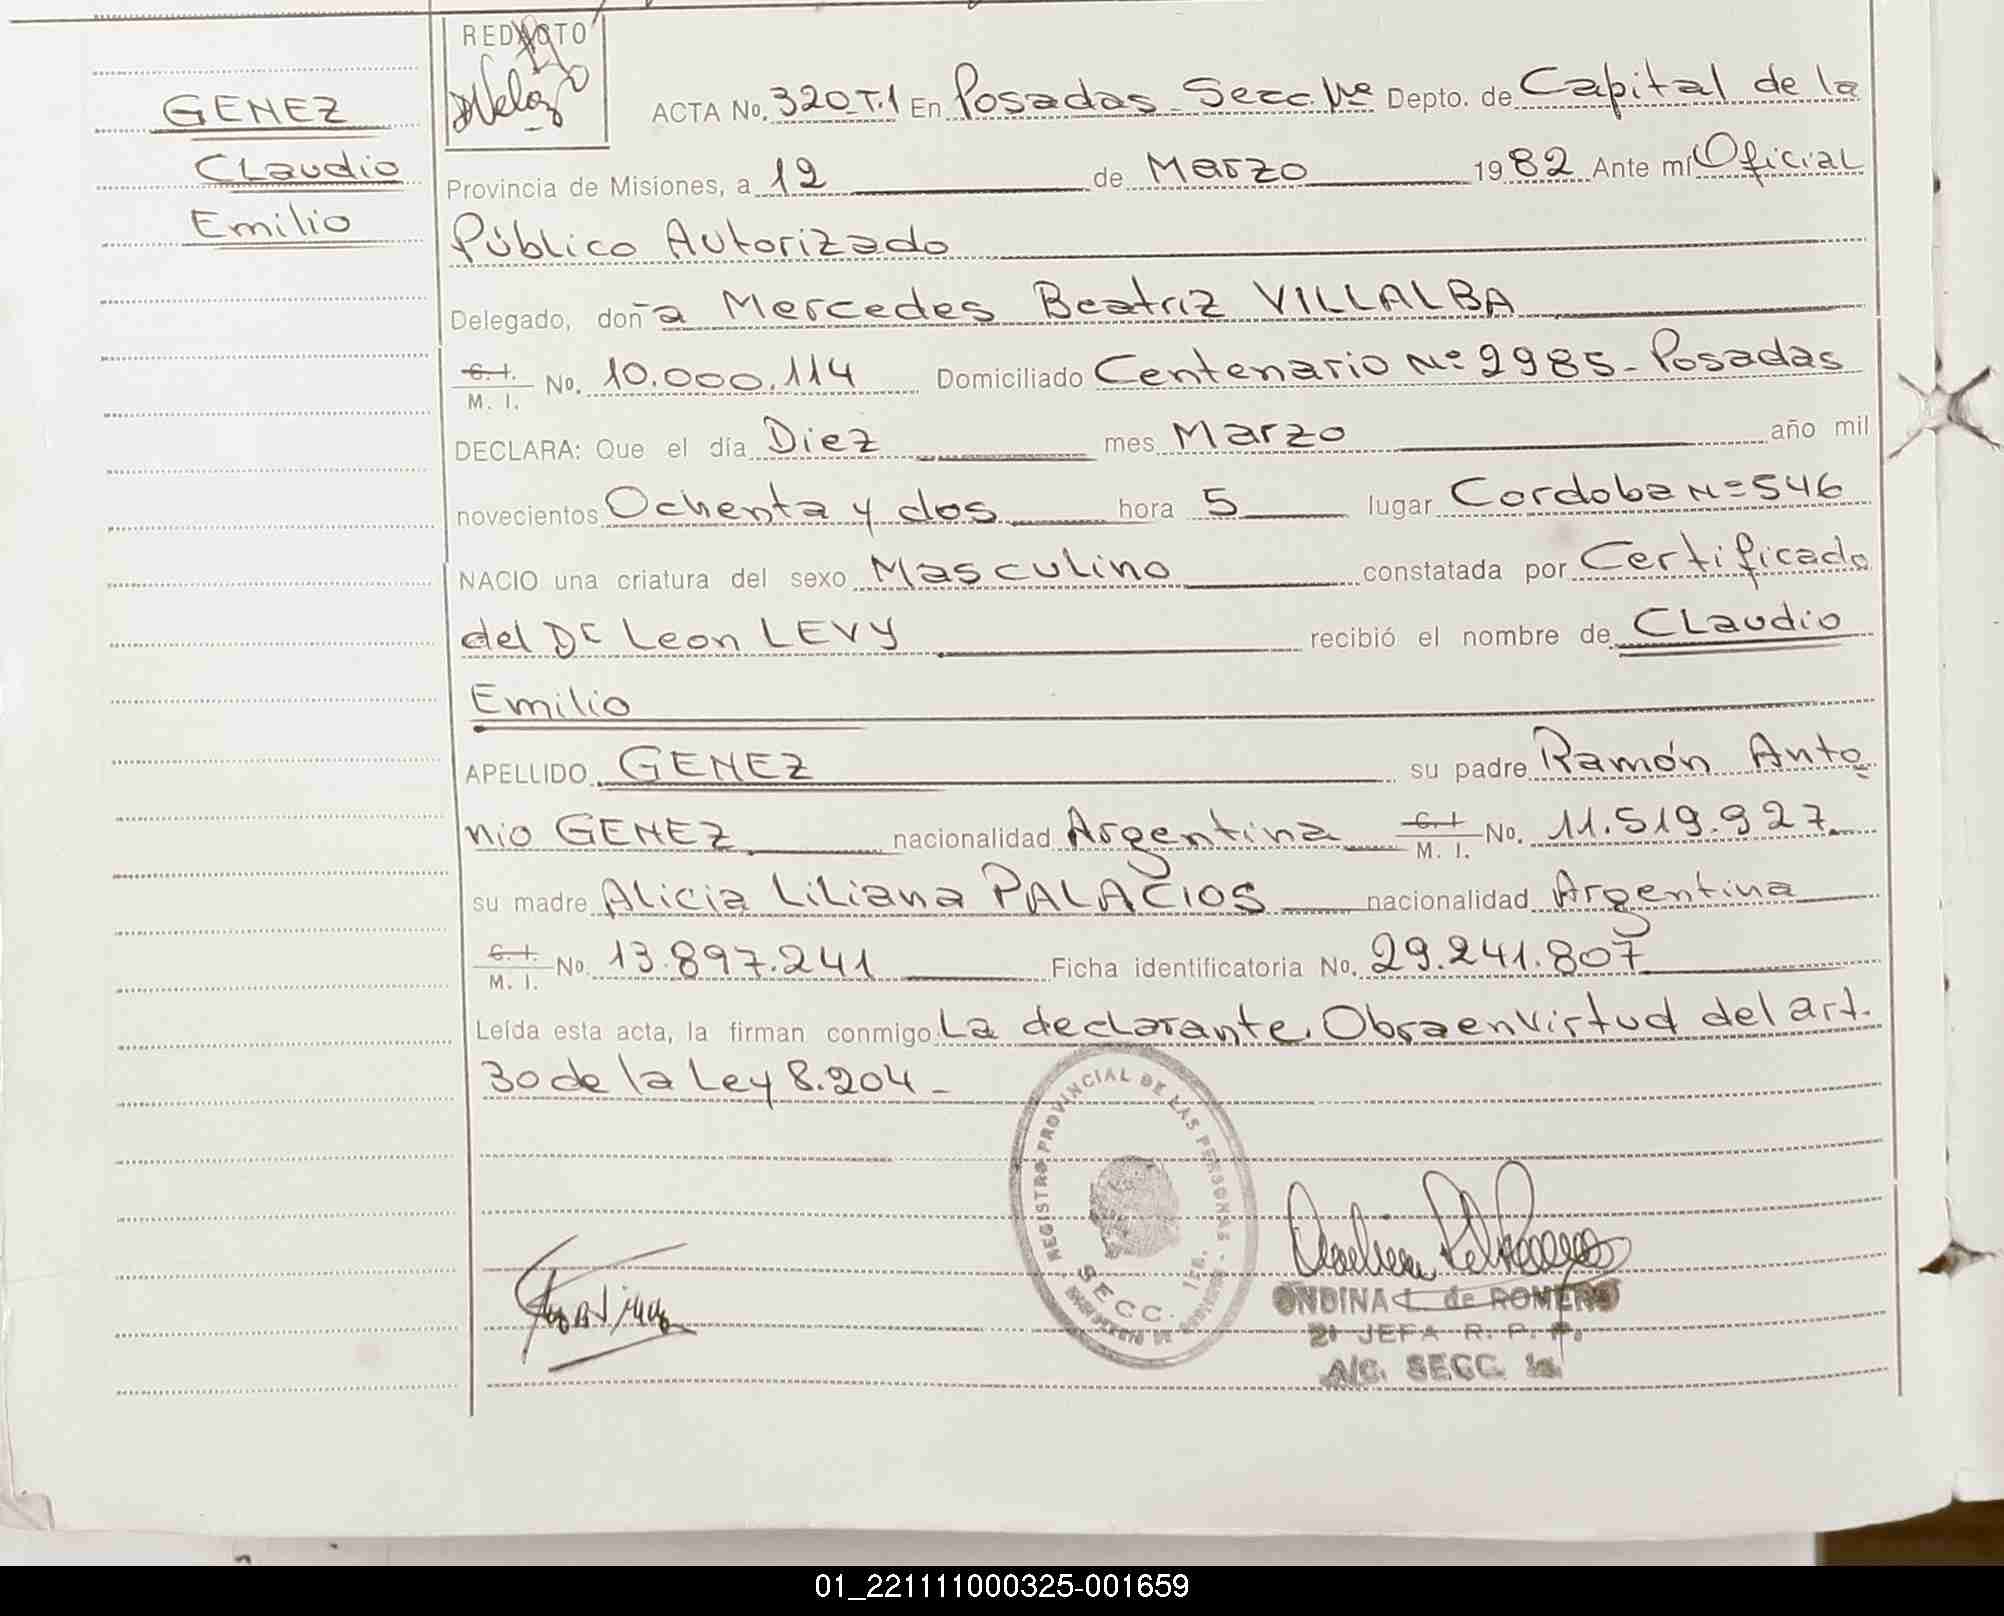 GENEZ
Claudio
Emilio
REDACTO
ACTA No. 320 T.1 En Posadas Secc. 1ra Depto. de Capital de la
Provincia de Misiones, a 12 de Marzo 1982 Ante mí Oficial
Público Autorizado
Delegado, doña Mercedes Beatriz VILLALBA
C. I. M. I. No. 10.000.114 Domiciliado Centenario Nº 2985 - Posadas
DECLARA: Que el día Diez mes Marzo año mil
novecientos Ochenta y dos hora 5 lugar Cordoba Nº 546
NACIO una criatura del sexo Masculino constatada por Certificado
del Dr Leon LEVY recibió el nombre de Claudio
Emilio
APELLIDO GENEZ su padre Ramón Anto
nio GENEZ nacionalidad Argentina C. I. M. I. No. 11.519.927
su madre Alicia Liliana PALACIOS nacionalidad Argentina
C. I. M. I. No. 13.897.241 Ficha identificatoria No. 29.241.807
Leída esta acta, la firman conmigo La declarante. Obra en Virtud del art.
30 de la Ley 8.204 -
REGISTRO PROVINCIAL DE LAS PERSONAS
SECC. 1RA.
ONDINA L. de ROMERO
2ª JEFA R. P. P.
A/C. SECC. 1a
01_221111000325-001659